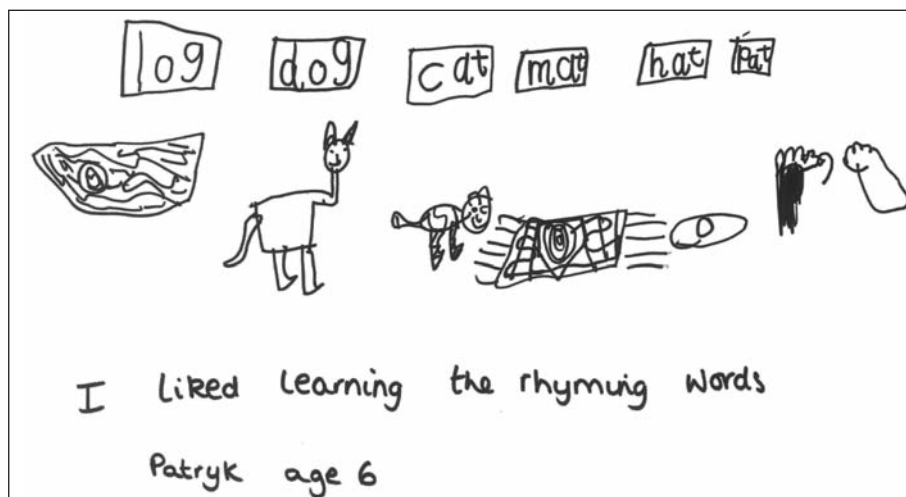 log dog cat mat hat Pat
I liked learning the rhyming words
Patryk age 6